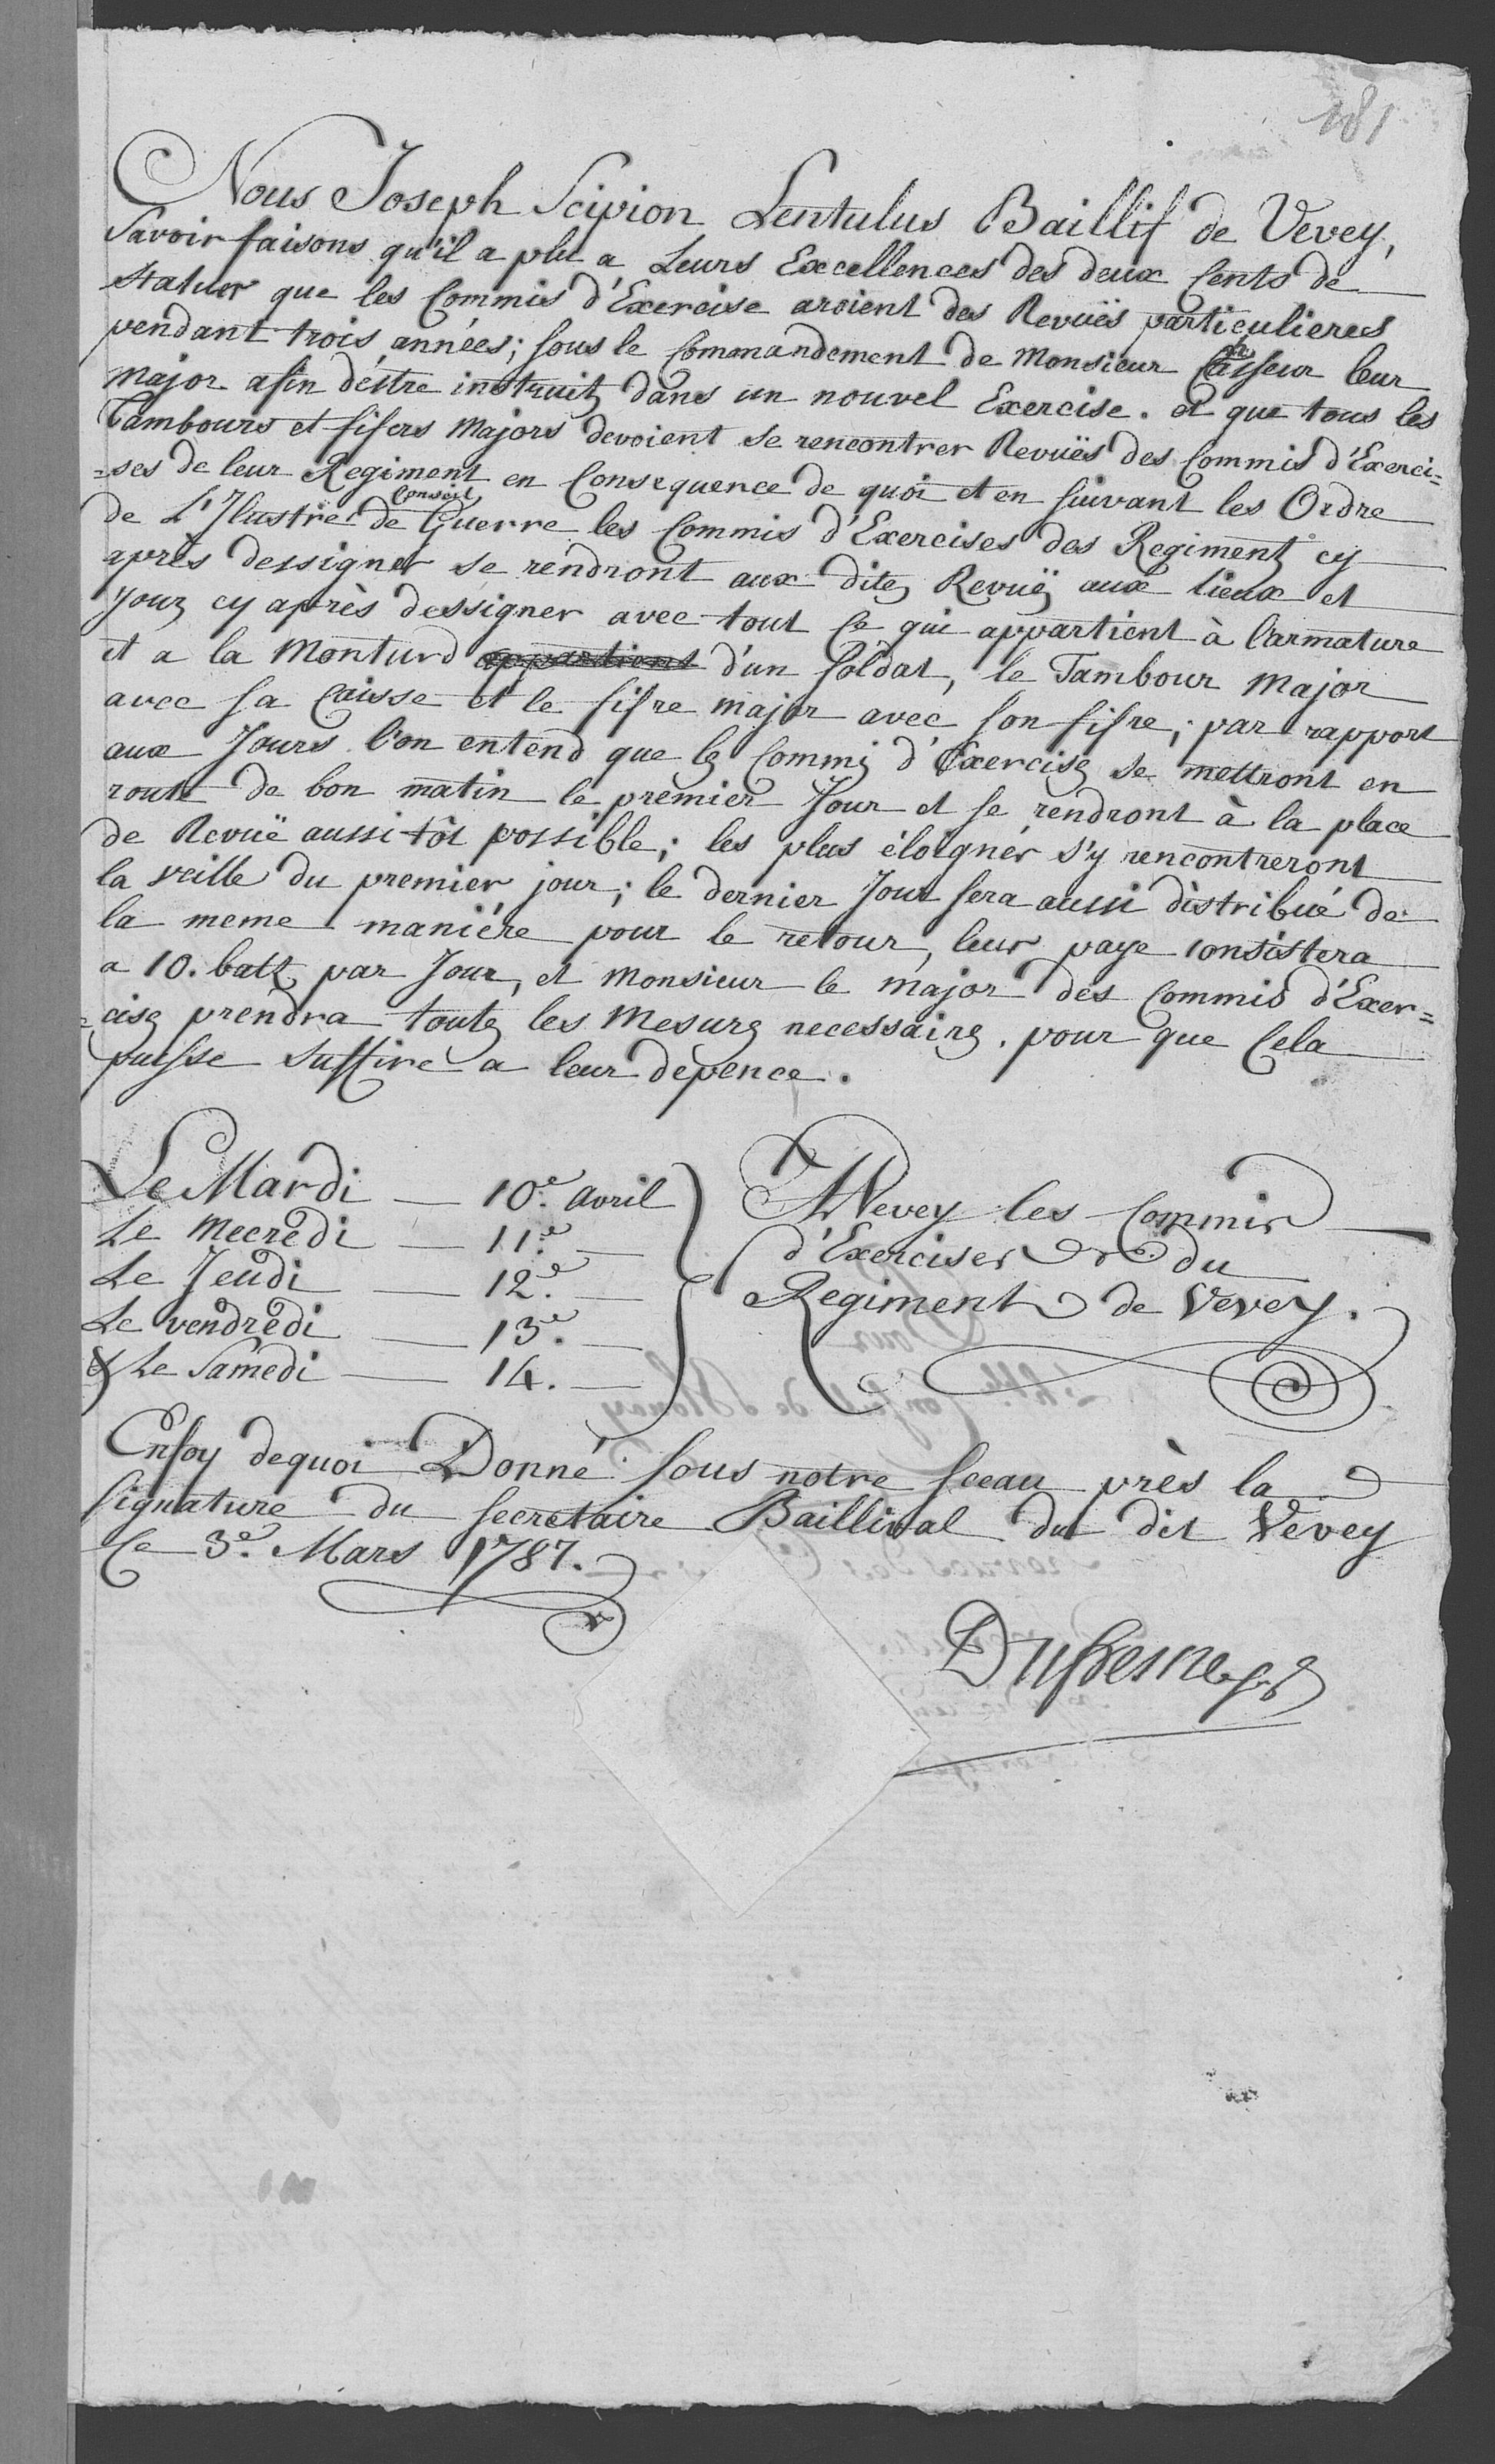 181
Nous Joseph Scipion Lentulus Baillif de Vevey,
Savoir faisons qu'il a plu a Leurs Excellences des deux Cents de
Statuer que les Commis d'Exercise aroient des Revuës particulieres
pendant trois années; sous le Commandement de Monsieur leur
Major afin déstre instruits dans un nouvel Exercise. et que tous les
Tambours et fifers Majors devoient se rencontrer Revuës des Commis d'Exerci=
=ses de leur Regiment en Consequence de quoi et en suivant les Ordre
de L'Ilustre Conseil de Guerre les Commis d'Exercises des Regiments cy
après dessigner se rendront aux dites Revuës aux lieux et
jours cy après dessigner avec tout ce qui appartient à l'armature
et a la Monture appartient d'un soldat, le Tambour Major
avec sa Caisse et le fifre major avec son fifre; par rapport
aux Jours l'on entend que les Commis d'Exercises se mettront en
route de bon matin le premier Jour et se rendront à la place
de Revuë aussi tôt possible; les plus éloigner s'y rencontreront
la veille du premier jour; le dernier Jour sera aussi distribué de
la meme maniére pour le retour, leur paye consistera
a 10. batz par Jour, et Monsieur le major des Commis d'Exer=
=cises prendra toutes les Mesures necessaires. pour que Cela
puisse suffire a leur dépence.
Le Mardi — 10e. avril
Le Mecredi — 11e. —
Le Jeudi — 12e. —
Le vendredi — 13e. —
& Le Samedi — 14. —
A Vevey les Commis
d'Exercises du
Regiment de Vevey.
Enfoy dequoi Donné sous notre sceau près la
signature du secretaire Baillival du dit Vevey
Ce 3e. Mars 1787.